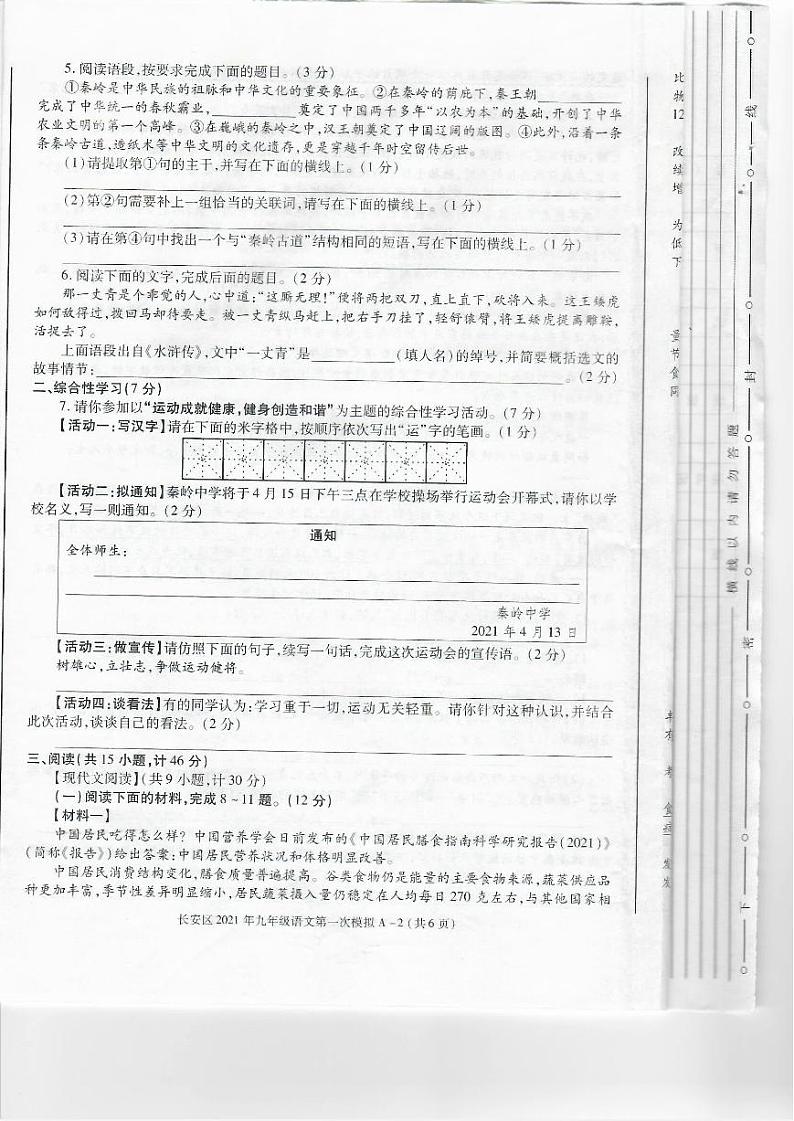 5.阅读语段,按要求完成下面的题目。(3分)
①秦岭是中华民族的祖脉和中华文化的重要象征。②在秦岭的荫庇下,秦王朝________
完成了中华统一的春秋霸业,________奠定了中国两千多年“以农为本”的基础,开创了中华
农业文明的第一个高峰。③在巍峨的秦岭之中,汉王朝奠定了中国辽阔的版图。④此外,沿着一条
条秦岭古道,造纸术等中华文明的文化遗存,更是穿越千年时空留传后世。
(1)请提取第①句的主干,并写在下面的横线上。(1分)
(2)第②句需要补上一组恰当的关联词,请写在下面的横线上。(1分)
(3)请在第④句中找出一个与“秦岭古道”结构相同的短语,写在下面的横线上。(1分)
6.阅读下面的文字,完成后面的题目。(2分)
那一丈青是个乖觉的人,心中道:“这厮无理!”便将两把双刀,直上直下,砍将入来。这王矮虎
如何敌得过,拨回马却待要走。被一丈青纵马赶上,把右手刀挂了,轻舒猿臂,将王矮虎提离雕鞍,
活捉去了。
上面语段出自《水浒传》,文中“一丈青”是________(填人名)的绰号,并简要概括选文的
故事情节:________。(2分)
二、综合性学习(7分)
7.请你参加以“运动成就健康,健身创造和谐”为主题的综合性学习活动。(7分)
【活动一:写汉字】请在下面的米字格中,按顺序依次写出“运”字的笔画。(1分)
【活动二:拟通知】秦岭中学将于4月15日下午三点在学校操场举行运动会开幕式,请你以学
校名义,写一则通知。(2分)
通知
全体师生:
秦岭中学
2021年4月13日
【活动三:做宣传】请仿照下面的句子,续写一句话,完成这次运动会的宣传语。(2分)
树雄心,立壮志,争做运动健将。
【活动四:谈看法】有的同学认为:学习重于一切,运动无关轻重。请你针对这种认识,并结合
此次活动,谈谈自己的看法。(2分)
三、阅读(共15小题,计46分)
【现代文阅读】(共9小题,计30分)
(一)阅读下面的材料,完成8~11题。(12分)
【材料一】
中国居民吃得怎么样?中国营养学会日前发布的《中国居民膳食指南科学研究报告(2021)》
(简称《报告》)给出答案:中国居民营养状况和体格明显改善。
中国居民消费结构变化,膳食质量普遍提高。谷类食物仍是能量的主要食物来源,蔬菜供应品
种更加丰富,季节性差异明显缩小,居民蔬菜摄入量仍稳定在人均每日270克左右,与其他国家相
长安区2021年九年级语文第一次模拟A-2(共6页)
比
物
12
改
续
增
为
低
下
量
节
食
横线以内请勿答题
线
封
密
下